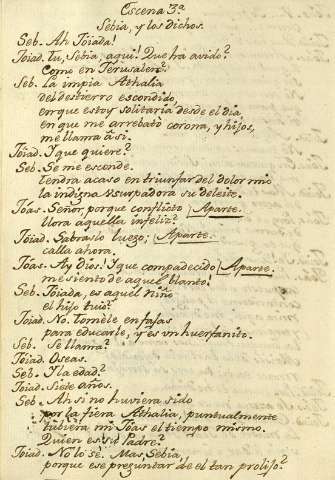 Escena 3ª
Sebia, y los dichos.
Seb. Ah Joiada!
Joiad. tu, Sebia, aqui! Que há avido?
Como en Jerusalen?
Seb. La impia Athalia
del destierro escondido,
en que estoy solitaria desde el dia
en que me arrebató corona, y hijos,
me llama á si.
Joiad. Y que quiere?
Seb. Se me esconde.
tendra acaso en triunfar del dolor mio
la indigna usurpadora su deleite.
Joás. Señor, porque conflicto | Aparte.
llora aquella infeliz?
Joiad. Sabraslo luego; | Aparte.
calla ahora.
Joás. Ay Dios! Y que compadecido | Aparte.
me siento de aquel llanto!
Seb. Joiada, es aquel niño
el hijo tuio?
Joiad. No. Toméle en fajas
para educarle, y es un huerfanito.
Seb. Se llama?
Joiad. Oseas.
Seb. Y la edad?
Joiad. Siete años.
Seb. Ah si no huviera sido
por la fiera Athalia, puntualmente
tubiera mi Joás el tiempo mismo.
Quien es su Padre?
Joiad. No lo sè. Mas, Sebia,
porque ese preguntar de el tan prolijo?